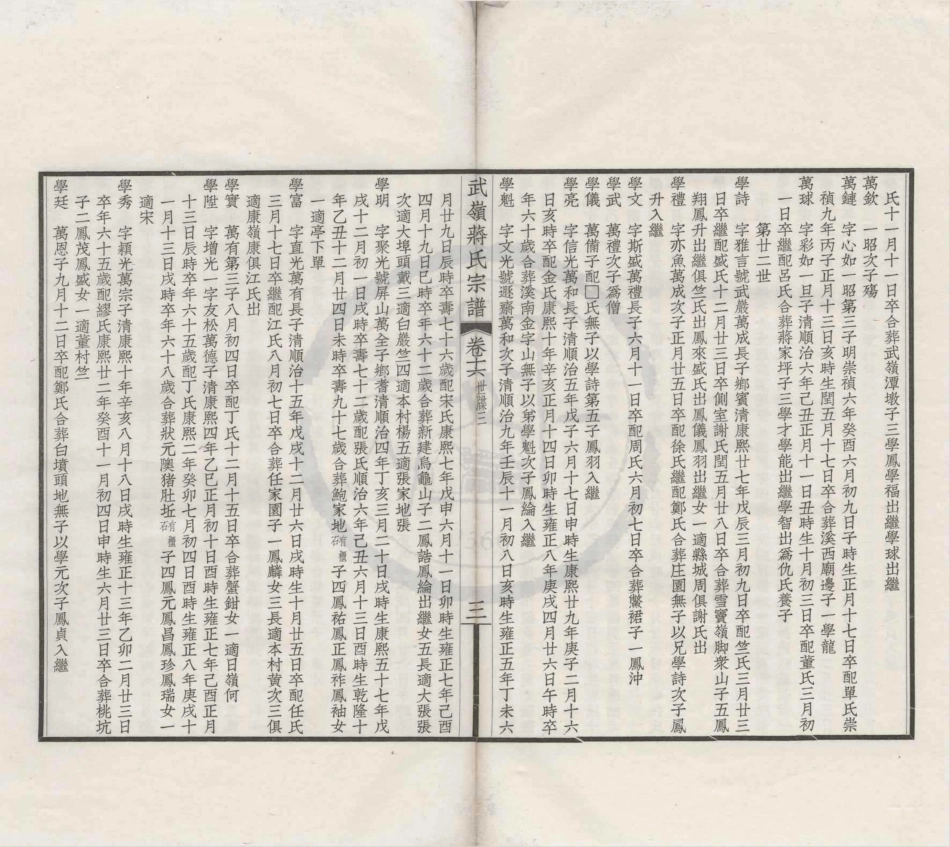 氏十一月十一日卒合葬武嶺潭墩子三學鳳學福出繼學球出繼
萬欽　一昭次子殤
萬鏈　字心如一昭第三子明崇禎六年癸酉六月初九日子時生正月十七日卒配單氏崇
禎九年丙子正月十三日亥時生閏五月十七日卒合葬溪西廟邊子一學龍
萬球　字彩如一旦子清順治六年己丑正月十一日丑時生十月初三日卒配董氏三月初
一日卒繼配呂氏合葬蔣家坪子三學才學能出繼學智出為仇氏養子
第廿二世
學詩　字雅言號武嚴萬成長子鄉賓清康熙廿七年戊辰三月初九日卒配竺氏三月廿三
日卒繼配盛氏十二月廿三日卒側室謝氏閏五月廿八日卒合葬雪竇嶺脚衆山子五鳳
翔鳳升出繼俱竺氏出鳳來盛氏出鳳儀鳳羽出繼女一適縣城周俱謝氏出
學禮　字亦魚萬成次子正月廿五日卒配徐氏繼配鄭氏合葬庄園無子以兄學詩次子鳳
升入繼
學文　字斯盛萬禮長子六月十一日卒配周氏六月初七日卒合葬鱉裙子一鳳沖
學武　萬禮次子為僧
學儀　萬備子配□氏無子以學詩第五子鳳羽入繼
學亮　字信光萬和長子清順治五年戊子六月十七日申時生康熙廿九年庚子二月十六
日亥時卒配金氏康熙十年辛亥正月十四日卯時生雍正八年庚戌四月廿六日午時卒
年六十歲合葬溪南金字山無子以弟學魁次子鳳綸入繼
學魁　字文光號遯齋萬和次子清順治九年壬辰十一月初八日亥時生雍正五年丁未六
武嶺蔣氏宗譜
卷十六
世牒三
三
月廿九日辰時卒壽七十六歲配宋氏康熙七年戊申六月十一日卯時生雍正七年己酉
四月十九日巳時卒年六十二歲合葬新建烏龜山子二鳳誥鳳綸出繼女五長適大張張
次適大埠頭戴三適白嚴竺四適本村楊五適張家地張
學明　字聚光號屏山萬金子鄉耆清順治四年丁亥三月二十日戌時生康熙五十七年戊
戌十二月初一日戌時卒壽七十二歲配張氏順治六年己丑六月十三日酉時生乾隆十
年乙丑十二月廿四日未時卒壽九十七歲合葬鮑家地有櫃石子四鳳祐鳳正鳳祚鳳袖女
一適亭下單
學富　字直光萬有長子清順治十五年戊戌十二月廿六日戌時生十月廿五日卒配任氏
三月十七日卒繼配江氏八月初七日卒合葬任家園子一鳳麟女三長適本村黄次三俱
適康嶺康俱江氏出
學實　萬有第三子八月初四日卒配丁氏十二月十五日卒合葬蟹鉗女一適日嶺何
學陞　字增光一字友松萬德子清康熙四年乙巳正月初十日酉時生雍正七年己酉正月
十三日辰時卒年六十五歲配丁氏康熙二年癸卯七月初四日酉時生雍正八年庚戌十
一月十三日戌時卒年六十八歲合葬狀元隩猪肚坵有櫃石子四鳳元鳳昌鳳珍鳳瑞女一
適宋
學秀　字穎光萬宗子清康熙十年辛亥八月十八日戌時生雍正十三年乙卯二月廿三日
卒年六十五歲配繆氏康熙廿二年癸酉十一月初四日申時生六月廿三日卒合葬桃坑
子二鳳茂鳳盛女一適董村竺
學廷　萬恩子九月十二日卒配鄭氏合葬白墳頭地無子以學元次子鳳貞入繼